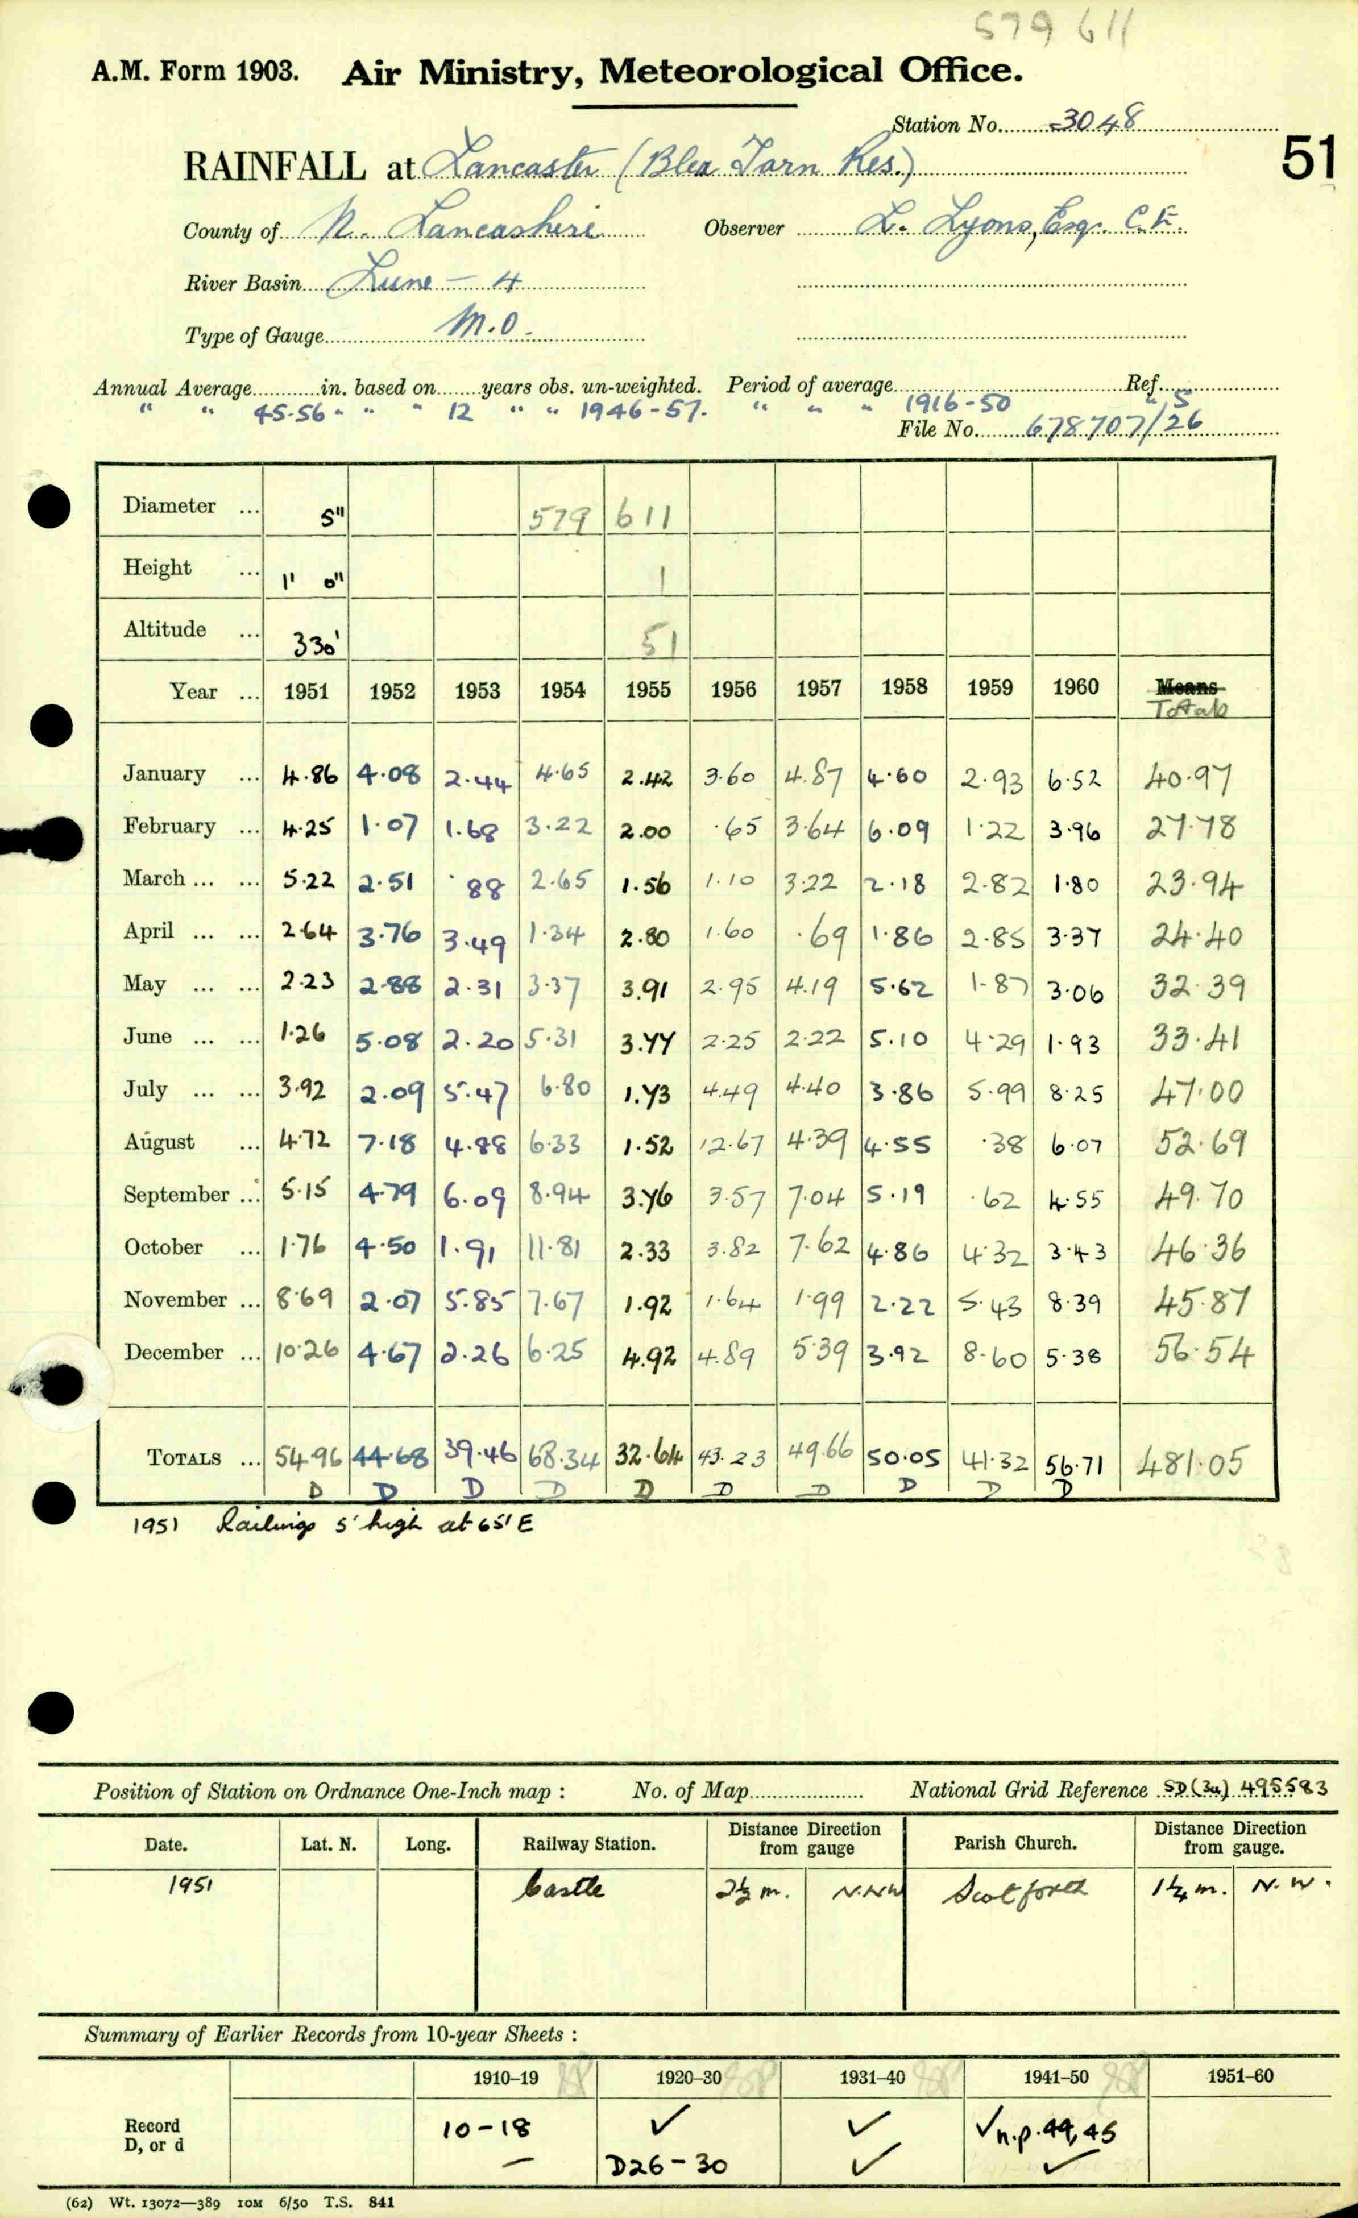 579 611
A.M. Form 1903. Air Ministry, Meteorological Office.
Station No. 3048
51
RAINFALL at Lancaster (Blea Tarn Res.)
County of N. Lancashire Observer L. Lyons, Esq. C.E.
River Basin Lune - 4
Type of Gauge M.O.
Annual Average in. based on years obs. un-weighted. Period of average Ref.
" " 45.56 " " " 12 " " 1946-57. " " " 1916-50 " 5
File No. 678707/26
Diameter ... 5" 579 611
Height ... 1' 0" 1
Altitude ... 330' 51
Year ... 1951 1952 1953 1954 1955 1956 1957 1958 1959 1960 Means
Totals
January ... 4.86 4.08 2.44 4.65 2.42 3.60 4.87 4.60 2.93 6.52 40.97
February ... 4.25 1.07 1.68 3.22 2.00 .65 3.64 6.09 1.22 3.96 27.78
March ... ... 5.22 2.51 .88 2.65 1.56 1.10 3.22 2.18 2.82 1.80 23.94
April ... ... 2.64 3.76 3.49 1.34 2.80 1.60 .69 1.86 2.85 3.37 24.40
May ... ... 2.23 2.88 2.31 3.37 3.91 2.95 4.19 5.62 1.87 3.06 32.39
June ... ... 1.26 5.08 2.20 5.31 3.77 2.25 2.22 5.10 4.29 1.93 33.41
July ... ... 3.92 2.09 5.47 6.80 1.73 4.49 4.40 3.86 5.99 8.25 47.00
August ... 4.72 7.18 4.88 6.33 1.52 12.67 4.39 4.55 .38 6.07 52.69
September ... 5.15 4.79 6.09 8.94 3.76 3.57 7.04 5.19 .62 4.55 49.70
October ... 1.76 4.50 1.91 11.81 2.33 3.82 7.62 4.86 4.32 3.43 46.36
November ... 8.69 2.07 5.85 7.67 1.92 1.64 1.99 2.22 5.43 8.39 45.87
December ... 10.26 4.67 2.26 6.25 4.92 4.89 5.39 3.92 8.60 5.38 56.54
TOTALS ... 54.96 44.68 39.46 68.34 32.64 43.23 49.66 50.05 41.32 56.71 481.05
D D D D D D D D D D
1951 Railings 5' high at 65' E
Position of Station on Ordnance One-Inch map : No. of Map National Grid Reference SD(34) 495583
Date. Lat. N. Long. Railway Station. Distance Direction from gauge Parish Church. Distance Direction from gauge.
1951 Castle 2½ m. N.NW Scotforth 1¼ m. N.W.
Summary of Earlier Records from 10-year Sheets :
1910–19 1920–30 1931–40 1941–50 1951–60
Record 10-18 ✓ ✓ ✓ n.p. 44, 45
D, or d — D26-30 ✓ ✓
(62) Wt. 13072—389 10M 6/50 T.S. 841